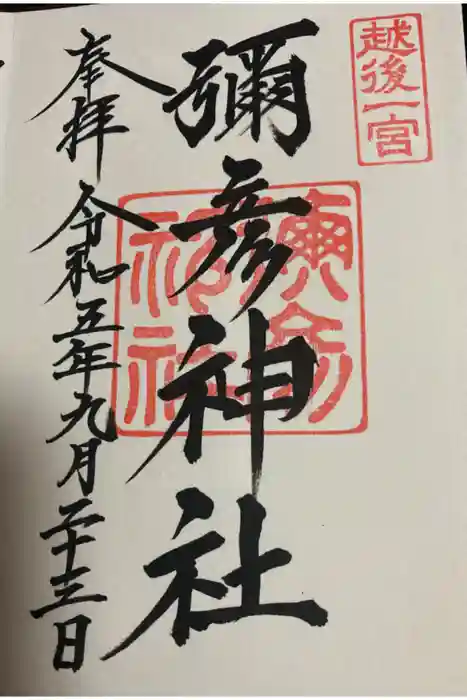 越後一宮
彌彦神社
奉拝 令和五年九月二十三日